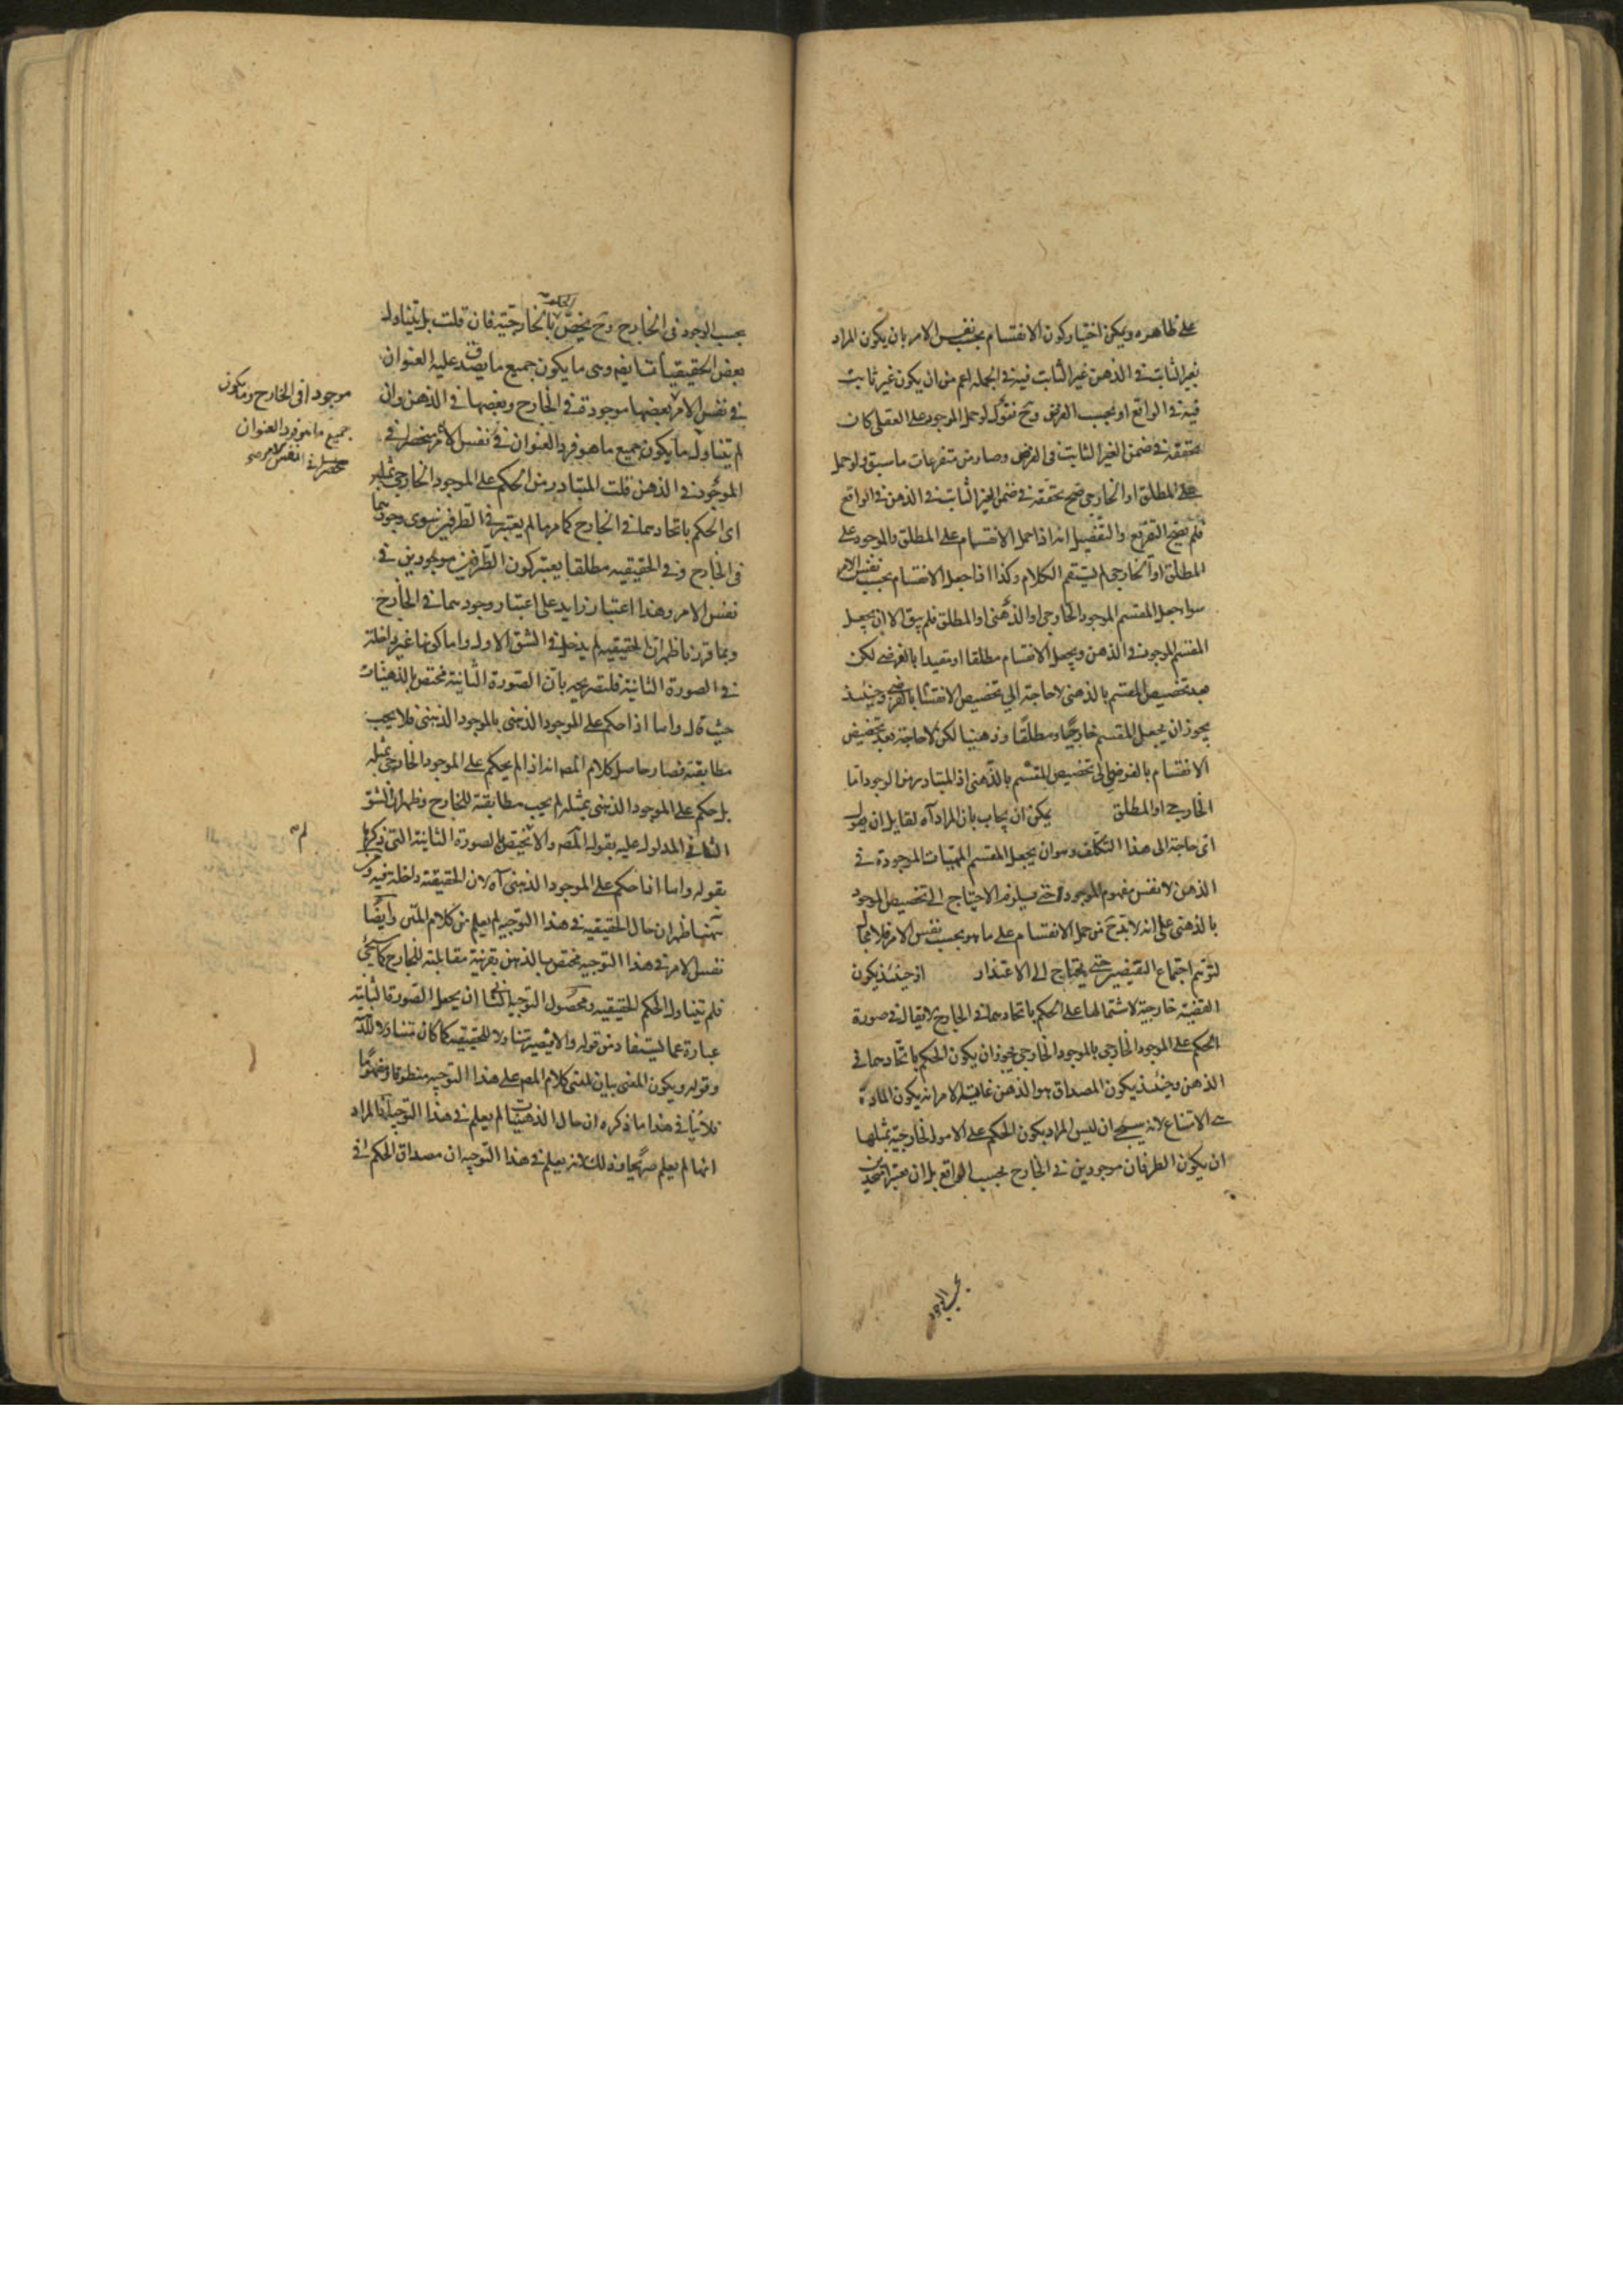 على ظاهره ويمكن اختيار كون الانقسام بحسب نفس الامر بان يكون المراد
بغير الثابت في الذهن غير الثابت فيه في الجملة اعم من ان يكون غير ثابت
فيه في الواقع او بحسب الفرض وح نقول لو حمل الموجود على العقلي كان
تحققه في ضمن الغير الثابت في الفرضى وصار من متفرعات ما سبق ولو حمل
على المطلق او الخارجي صح تحققه في ضمن الغير الثابت في الذهن في الواقع
فلم يصح التفريع والتفصيل انه اذا حمل الانقسام على المطلق والموجود على
المطلق او الخارجي لم يستقم الكلام وكذا اذا جعل الانقسام بحسب نفس الامر
سواء جعل المقسم الموجود الخارجي او الذهني او المطلق فلم يبق الا ان يجعل
المقسم الموجود في الذهن ويجعل الانقسام مطلقا او مقيدا بالفرضى لكن
بعد تخصيص المقسم بالذهنى لا حاجة الى تخصيص الانقسام بالفرضى وحينئذ
يجوز ان يجعل المقسم خارجيا ومطلقا وذهنيا لكن لا حاجة بعد تخصيص
الانقسام بالفرضى الى تخصيص المقسم بالذهنى اذ المتبادر من الوجود اما
الخارجي او المطلق يمكن ان يجاب بان المراد آه لقايل ان يقول
اى حاجة الى هذا التكلف وهو ان يجعل المقسم المهيات الموجودة في
الذهن لا نفس مفهوم الموجود حتى يلزم الاحتياج الى تخصيص الموجود
بالذهنى على انه لا بد ح من حمل الانقسام على ما هو بحسب نفس الامر فلا مجال
لتوهم اجتماع النقيضين حتى يحتاج الى الاعتذار اذ حينئذ يكون
القضية خارجية لاشتمالها على الحكم باتحادهما في الخارج لا يقال في صورة
الحكم على الموجود الخارجي بالموجود الخارجي يجوز ان يكون الحكم باتحادهما في
الذهن وحينئذ يكون المصداق هو الذهن غاية الامر انه يكون المادة
الامتناع لانه ان ليس المراد بكون الحكم على الامور الخارجية بمثلها
ان يكون الطرفان موجودين في الخارج بحسب الواقع بل ان يعتبر اتحادهما
بحسب الوجود
بحسب الوجود في الخارج وح يختص بالخارجية فان قلت بل يتناول
بعض الحقيقيات ايضا وهى ما يكون جميع ما يصدق عليه العنوان
في نفس الامر بعضها موجودة في الخارج وبعضها في الذهن وان
لم يتناول ما يكون جميع ما هو فرد العنوان في نفس الامر منحصرا في
الموجود في الذهن قلت المتبادر من الحكم على الموجود الخارجي بمثله
اى الحكم باتحادهما في الخارج كما مر ما لم يعتبر في الطرفين سوى وجودهما
في الخارج وفي الحقيقيه مطلقا يعتبر كون الطرفين موجودين في
نفس الامر وهذا اعتبار زايد على اعتبار وجودهما في الخارج
وبما قررنا ظهر ان الحقيقيه لم يدخل في الشق الاول واما كونها غير داخلة
في الصورة الثانية فلتصريحه بان الصورة الثانية مختص بالذهنيات
حيث قال واما اذا حكم على الموجود الذهنى بالموجود الذهنى فلا يجب
مطابقته فصار حاصل كلام المص انه اذا لم يحكم على الموجود الخارجي بمثله
بل حكم على الموجود الذهنى بمثله لم يجب مطابقته للخارج وظهر ان الشق
الثاني المدلول عليه بقول المص والا لا يختص بالصورة الثانية التى ذكرها
بقوله واما اذا حكم على الموجود الذهنى آه لان الحقيقية داخلة فيه ومن
ههنا ظهر ان حال الحقيقية في هذا التوجيه لم يعلم من كلام المتن وايضا
نفس الامر في هذا التوجيه مختص بالذهن بقرينة مقابلته للخارج كما سيجئ
فلم يتناول الحكم الحقيقيه ومحصول التوجيه الثاني ان يجعل الصورة الثانية
عبارة عما يستفاد من قوله والا فيصير متناولا للحقيقيه كما كان متناولا للذهنيه
وقوله ويكون المعنى بيان لمعنى كلام المص على هذا التوجيه منطوقا ومفهوما
فلا ينافي هذا ما ذكره ان حال الذهنيات لم يعلم في هذا التوجيه اذ المراد
انها لم يعلم صريحا وذلك لانه يعلم في هذا التوجيه ان مصداق الحكم في
موجودا في الخارج ويكون
جميع ما هو فرد العنوان
منحصرا في نفس الامر صح
لم